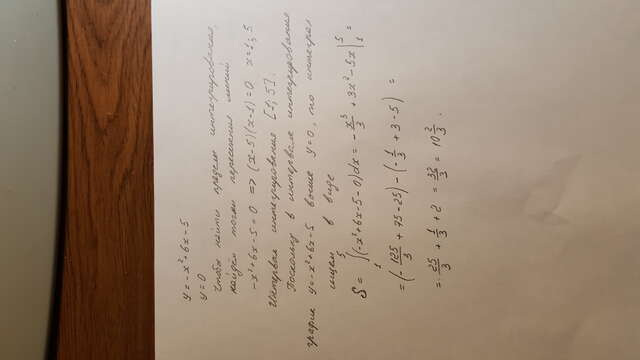 y = -x² + 6x - 5
y = 0
Чтобы найти пределы интегрирования,
найдём точки пересечения линий
-x² + 6x - 5 = 0 => (x-5)(x-1) = 0 x = 1; 5
Интервал интегрирования [1; 5].
Поскольку в интервале интегрирования
график y = -x² + 6x - 5 выше y = 0, то интеграл
ищем в виде
S = ∫₁⁵ (-x² + 6x - 5 - 0) dx = -x³/3 + 3x² - 5x |₁⁵ =
= (-125/3 + 75 - 25) - (-1/3 + 3 - 5) =
= 25/3 + 1/3 + 2 = 32/3 = 10 2/3.